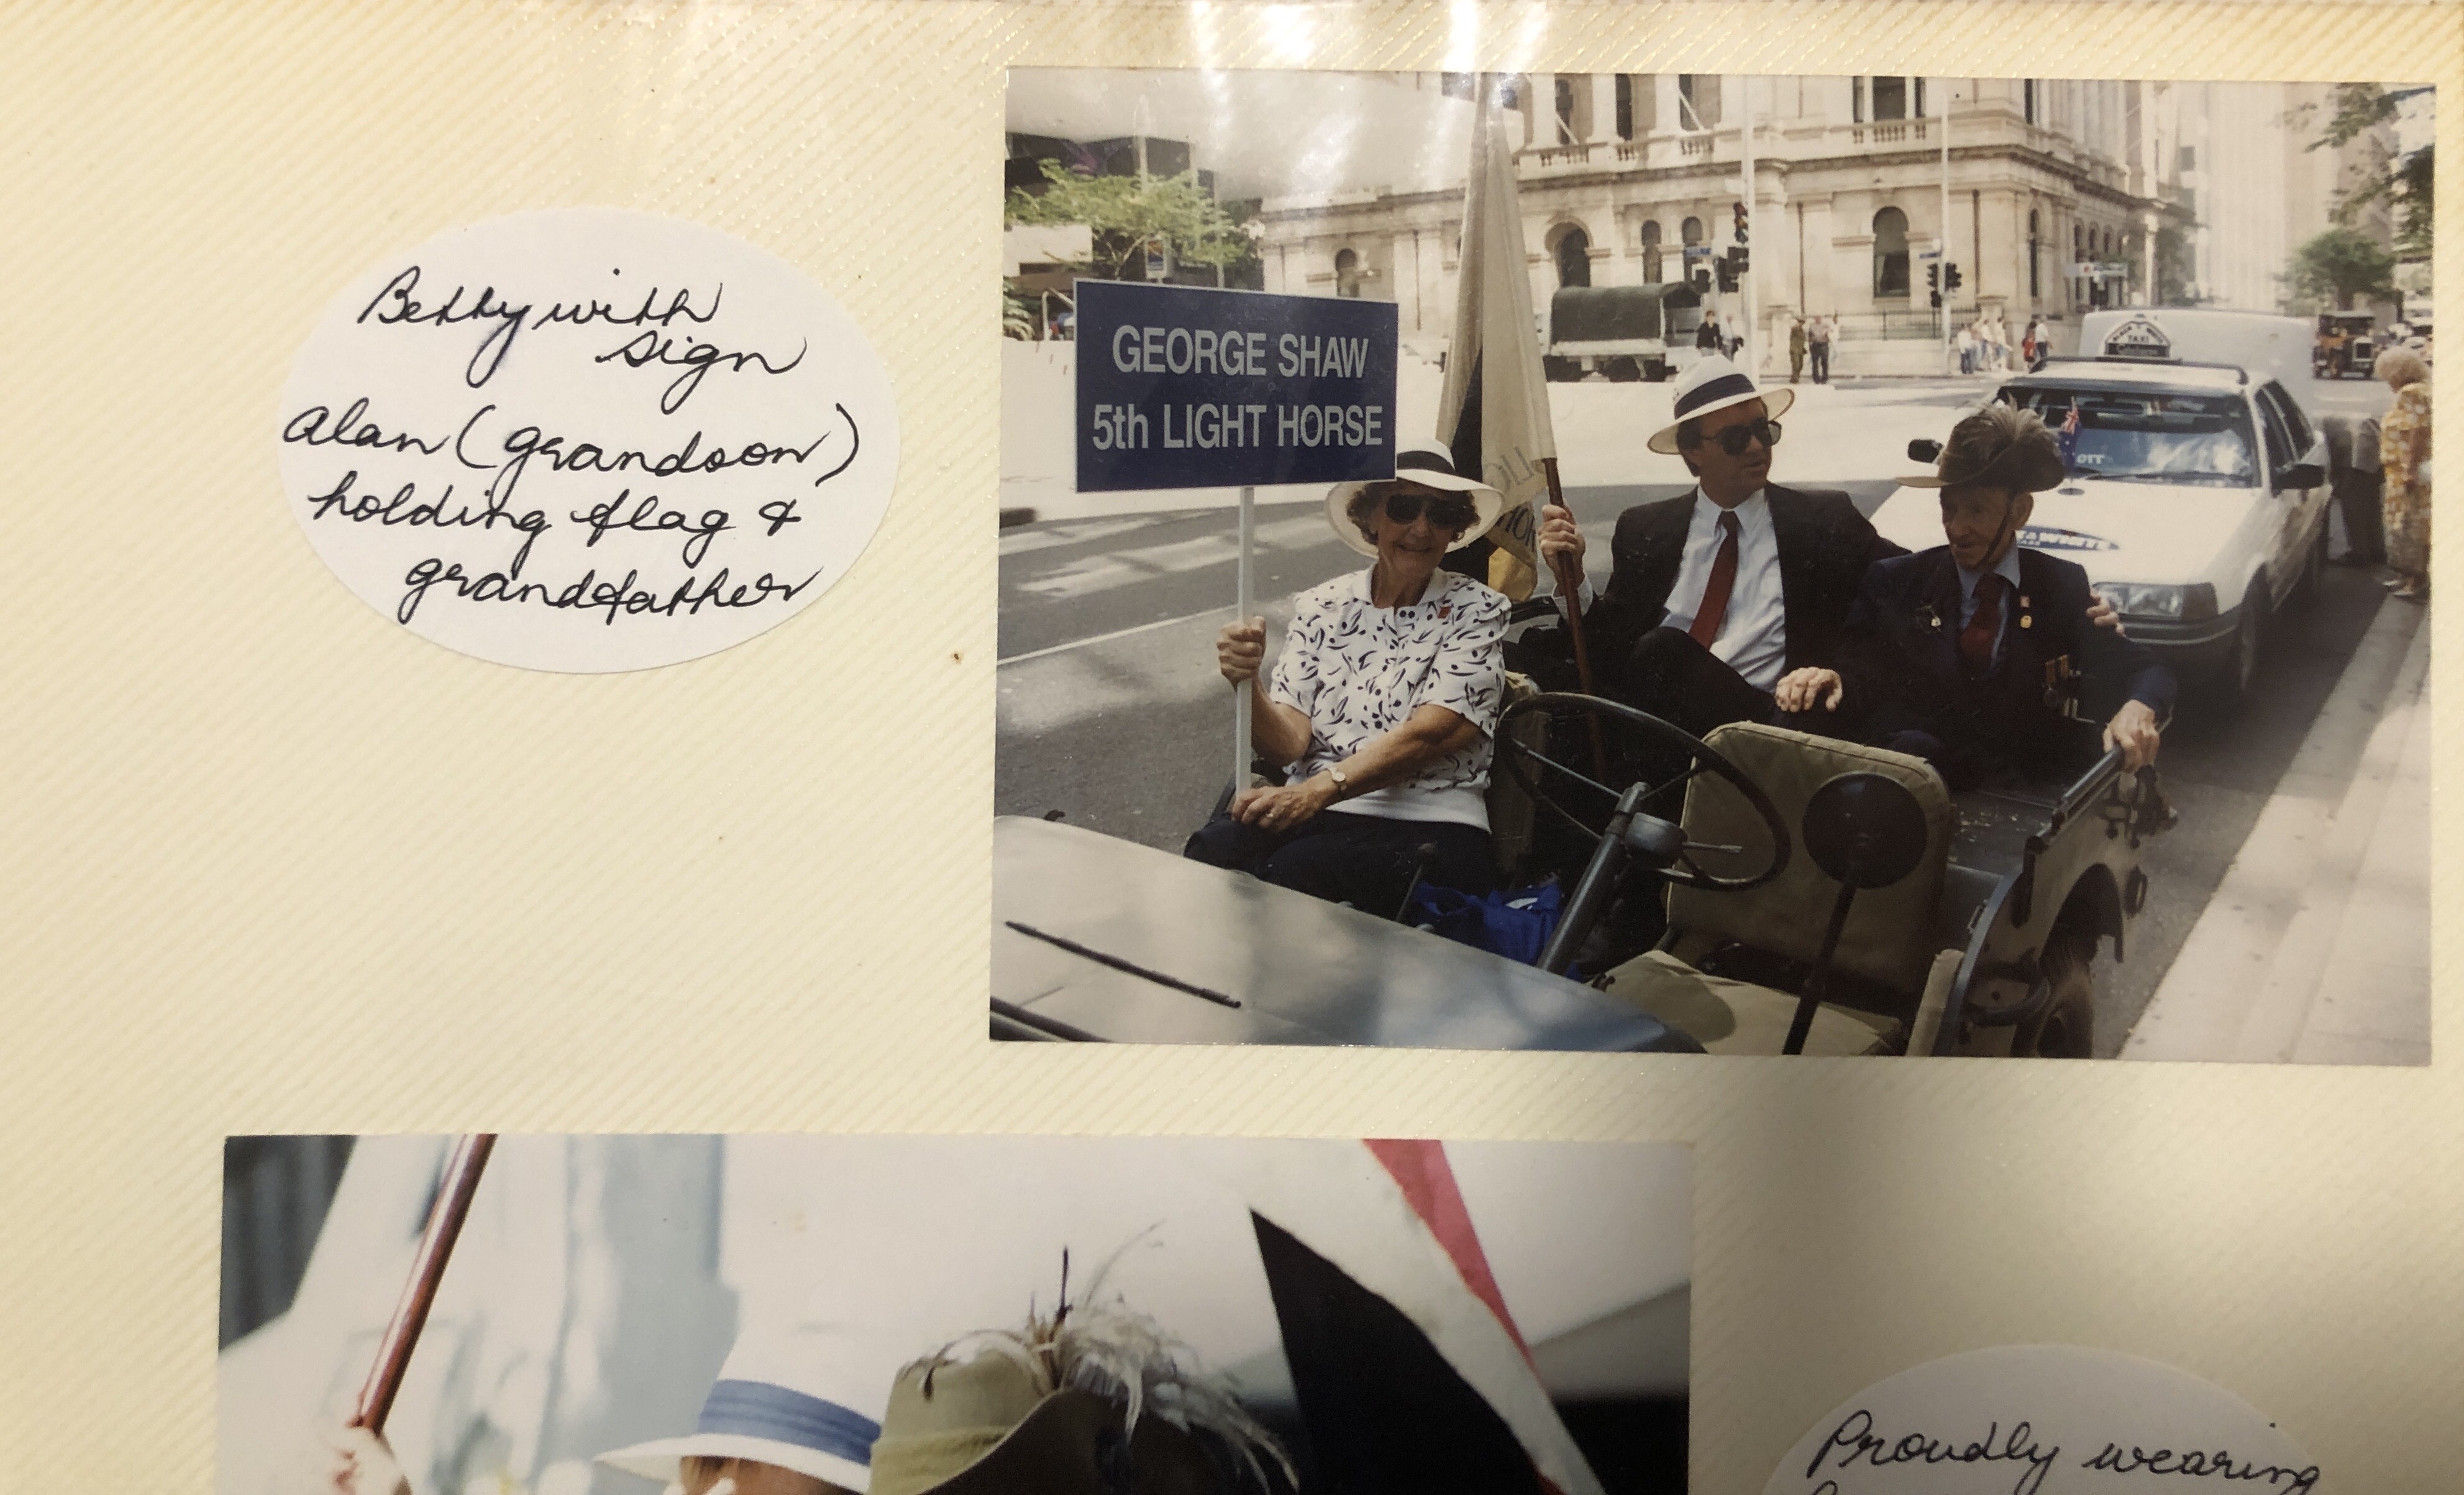 Betty with
sign
Alan (grandson)
holding flag &
grandfather
GEORGE SHAW
5th LIGHT HORSE
TAXI
Proudly wearing